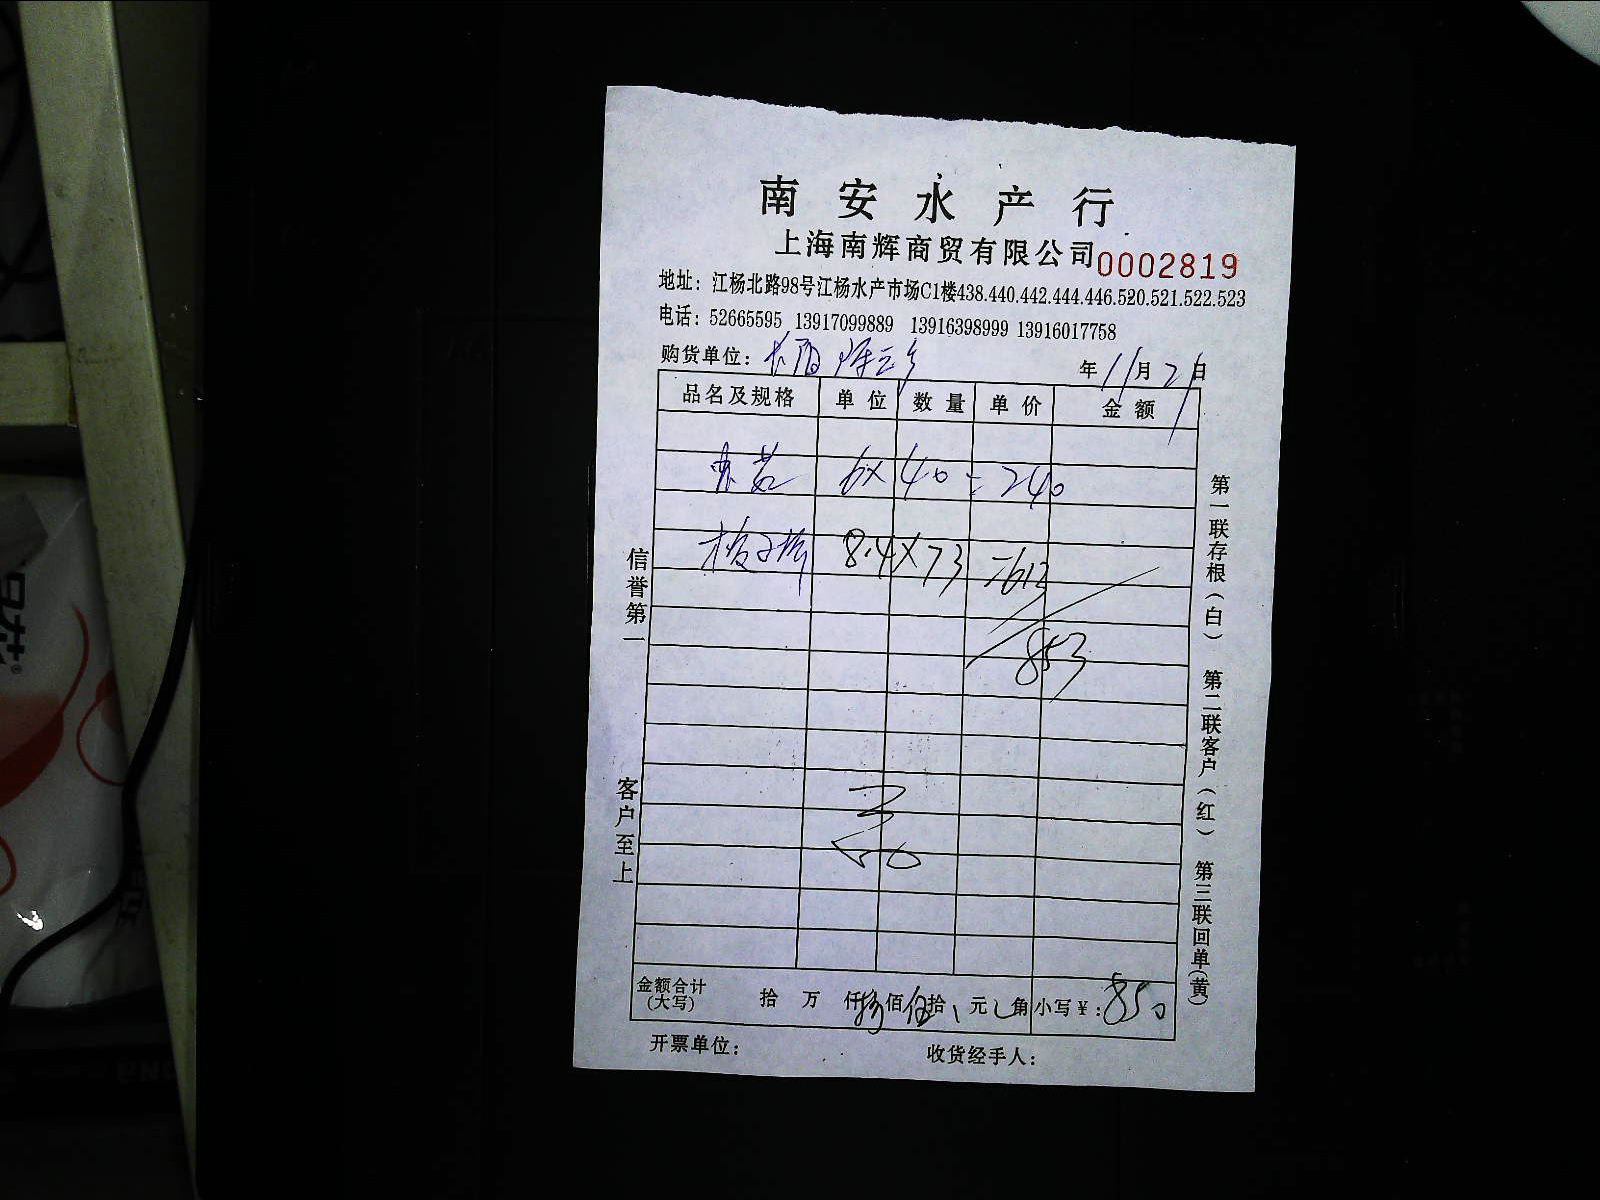 南安水产行
上海南辉商贸有限公司 0002819
地址：江杨北路98号江杨水产市场C1楼438.440.442.444.446.520.521.522.523
电话：52665595 13917099889 13916398999 13916017758
购货单位： 年11月21日
品名及规格 单位 数量 单价 金额
6×40=240
8.4×73=613
853
信誉第一
客户至上
第一联存根（白） 第二联客户（红） 第三联回单（黄）
金额合计（大写） 拾 万 仟捌佰伍拾 元 角 小写￥：850
开票单位： 收货经手人：